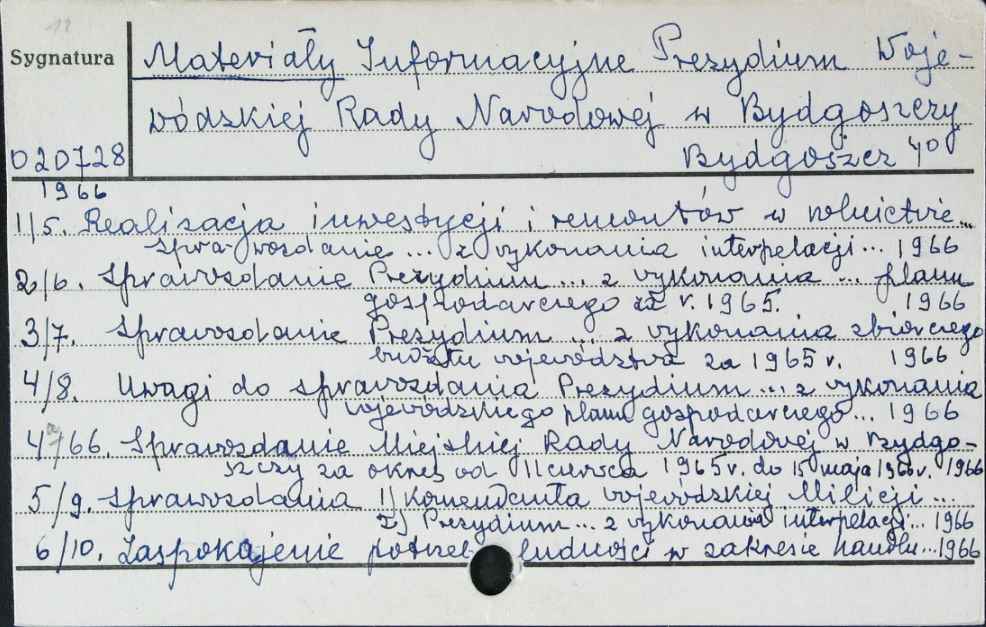 12
Sygnatura
Materiały Informacyjne Prezydium Woje-
wódzkiej Rady Narodowej w Bydgoszczy
020728
Bydgoszcz 4°
1966
1/5. Realizacja inwestycji i remontów w rolnictwie...
sprawozdanie ... z wykonania interpelacji ... 1966
2/6. Sprawozdanie Prezydium ... z wykonania ... planu
gospodarczego za r. 1965. 1966
3/7. Sprawozdanie Prezydium ... z wykonania zbiorczego
budżetu województwa za 1965 r. 1966
4/8. Uwagi do sprawozdania Prezydium ... z wykonania
wojewódzkiego planu gospodarczego ... 1966
4a/66. Sprawozdanie Miejskiej Rady Narodowej w Bydgo-
szczy za okres od 1 czerwca 1965 r. do 15 maja 1966 r. 1966
5/9. Sprawozdania 1) Komendanta Wojewódzkiej Milicji ...
2) Prezydium ... z wykonania interpelacji ... 1966
6/10. Zaspokajenie potrzeb ludności w zakresie handlu ... 1966